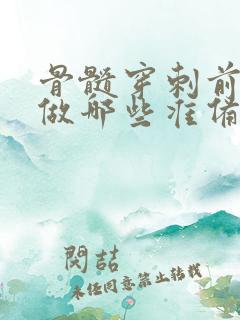 骨髓穿刺前
做那些准备
闵喆
未经同意禁止转载